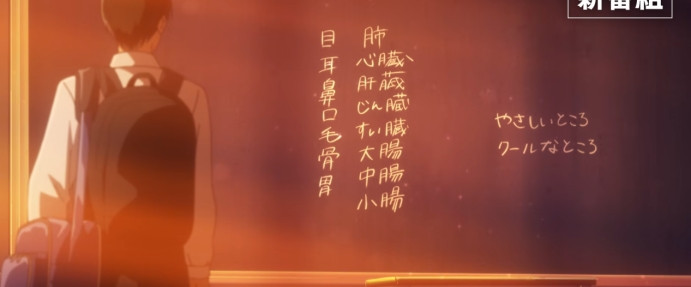 新番組
目
耳
鼻
口
毛
骨
胃
肺
心臓
肝臓
じん臓
すい臓
大腸
中腸
小腸
やさしいところ
クールなところ